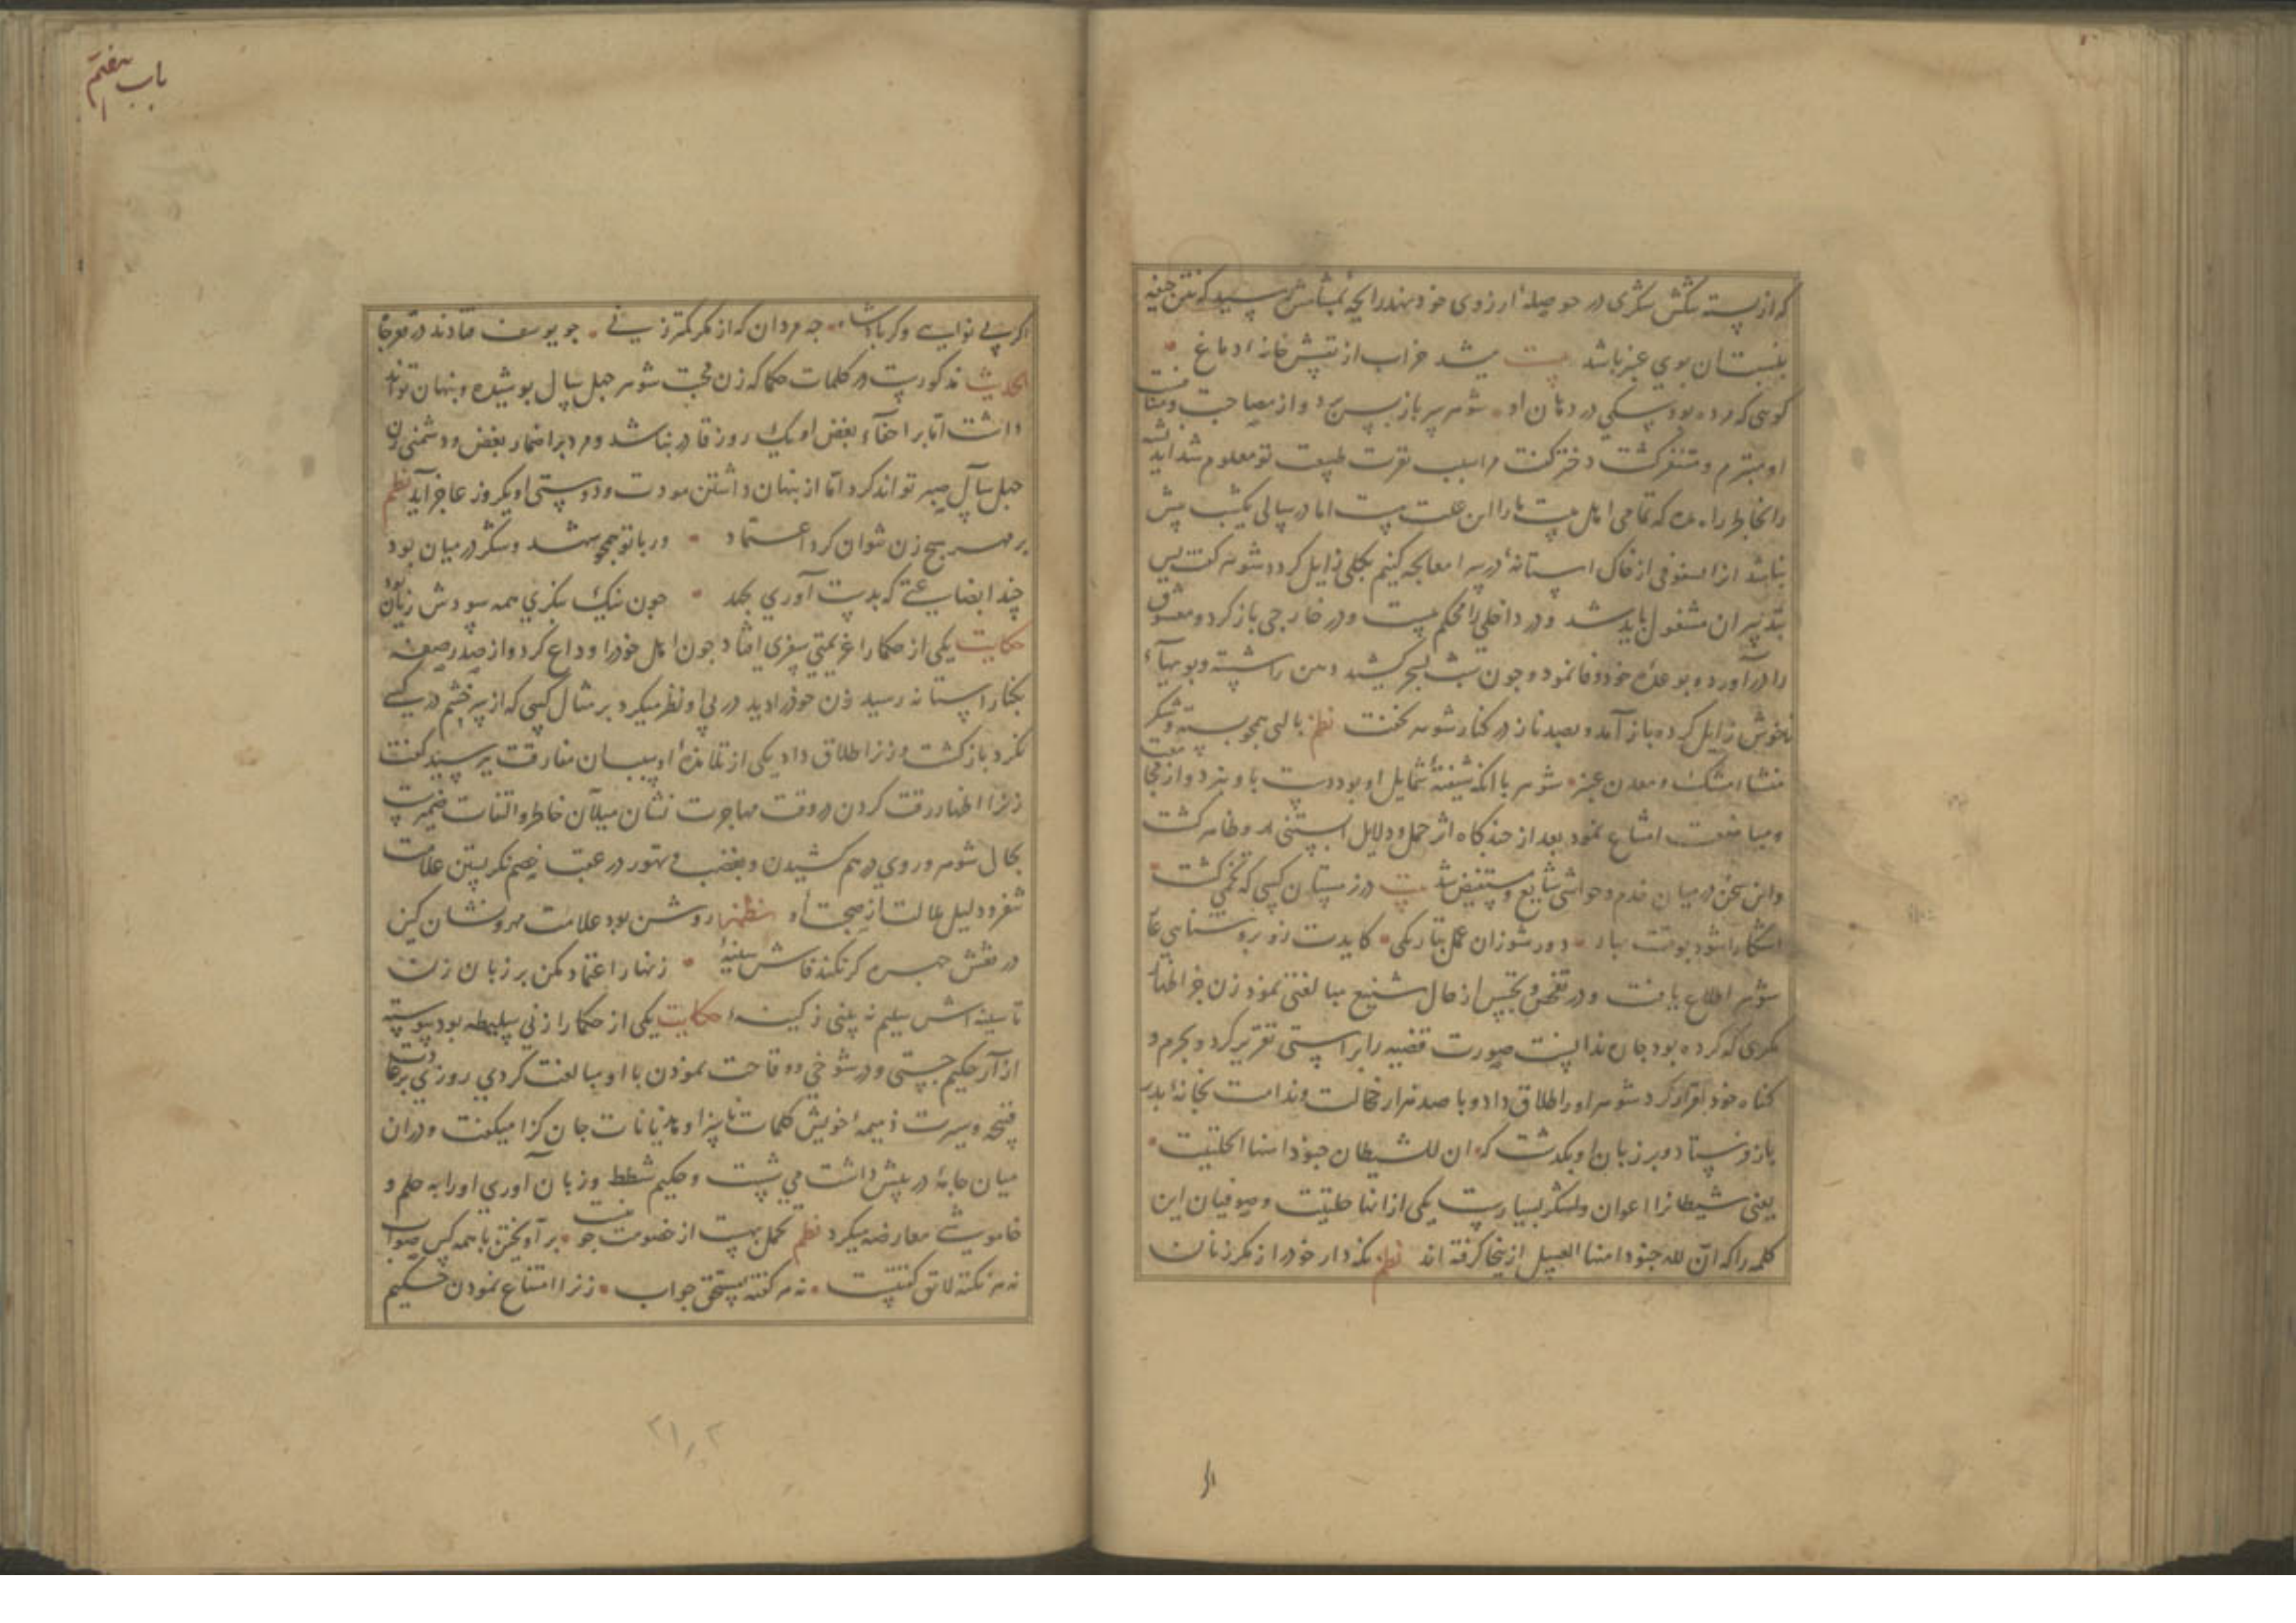 که از پسته شکرش شکری در حوصلهٔ ارزوی خود نهد رایحهٔ بمشامش رسید که نتن جیفه
بنسبت ان بوی عنبر باشد بیت میشد خراب از نتنش خانهٔ دماغ
کویی که مرده بود سکی در دهان او شوهر سر باز پس برد و از مصاحبت و مثافنت
او متبرم و متنفر کشت دختر کفت مرا سبب نفرت طبیعت تو معلوم شد اندیشه
را بخاطر راه مده که تمامی اهل بیت ما را این علت هست اما در سالی یکشب بیش
نباشد
بتدبیر ان مشغول باید شد و در داخلی را محکم بست و در خارجی باز کرد و معشوق
را در آورده بوعدهٔ خود وفا نمود و چون شب بسحر کشید دهن را شسته و بویهاء
ناخوش زایل کرده باز آمد و بصد ناز در کنار شوهر بخفت نظم با لبی همچو پسته و شکر
منشاء مشک و معدن عنبر شوهر با انکه شیفتهٔ شمایل او بود دست باو نبرد و از مجامعت
و مباضعت امتناع نمود بعد از چند کاه اثر حمل و دلایل ابستنی او ظاهر کشت
و این سخن در میان خدم و حواشی شایع و مستفیض شد بیت در زمستان کسی که تخمی کشت
اشکارا شود بوقت بهار
شوهر اطلاع یافت و در تفحص و تجسس از حال شنیع مبالغتی نمود زن جز اظهار
مکری که کرده بود چاره ندانست صورت قضیه را براستی تقریر کرد و بجرم و
کناه خود اقرار کرد شوهر او را طلاق داد و با صد هزار خجالت و ندامت بخانهٔ پدر
باز فرستاد و بر زبان او بکذشت که ان للشیطان جنودا منها الحلتیت
یعنی شیطانرا اعوان و لشکر بسیارست یکی از انها حلتیت و صوفیان این
کلمه را که ان لله جنودا منها العسل ازینجا کرفته اند نظم نکه دار خود را ز مکر زنان
باب هفتم
اکر بی نوایی وکر پادشا چه مردان که از مکر کمتر زنی چو یوسف فتادند در قعر چا
الحدیث مذکورست در کلمات حکما که زن محبت شوهر چهل سال پوشیده و پنهان تواند
داشت اما بر اخفاء بغض او یک روز قادر نباشد و مرد بر اضمار بغض و دشمنی زن
چهل سال صبر تواند کرد اما از پنهان داشتن مودت و دوستی او یکروز عاجز آید نظم
بر مهر هیچ زن نتوان کرد اعتماد ور با تو همچو شهد و شکر در میان بود
چندا بضاعتی که بدست آوری بجهد چون نیک بنکری همه سودش زیان بود
حکایت یکی از حکما را عزیمتی سفری افتاد چون اهل خود را وداع کرد و از صدر صفه
بکنار استانه رسید زن خود را دید در پی او نظر میکرد بر مثال کسی که از سر خشم در کسی
نکرد باز کشت و زنرا طلاق داد یکی از تلامذهٔ او سبب ان مفارقت پرسید کفت
زنرا اظهار رقت کردن در وقت مهاجرت نشان میلان خاطر و التفات ضمیرست
بحال شوهر و روی درهم کشیدن و بغضب و تهور در عقب خصم نکریستن علامت
تنفر و دلیل ملالت از صحبت او نظم روشن بود علامت مهر و نشان کین
در نقش چهره کر نکند فاش سینهٔ زنهار اعتماد مکن بر زبان زن
تا سینه اش سلیم نه بینی ز کینهٔ حکایت یکی از حکما را زنی سلیطه بود پیوسته
ازار حکیم جستی و در شوخی و وقاحت نمودن با او مبالغت کردی روزی بر عادت
قبیحه و سیرت ذمیمهٔ خویش کلمات ناسزا و هذیانات جان کزا میکفت و در ان
میان جامهٔ در پیش داشت می شست و حکیم شطط و زبان آوری او را به حلم و
خاموشی معارضه میکرد نظم تحمل بهست از خصومت چو نیست بر آویختن با همه کس صواب
نه هر نکته لایق کفتنست نه هر کفته مستحق جواب زنرا امتناع نمودن حکیم